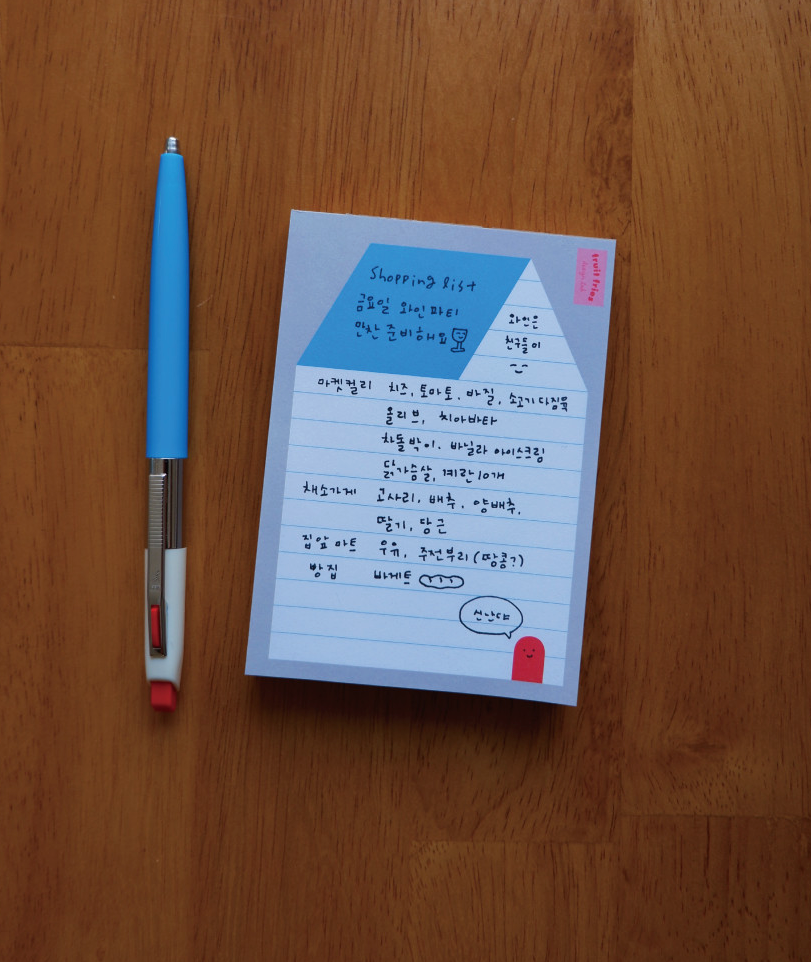 Shopping list
금요일 와인파티
만찬 준비해요
와인은
친구들이
fruit fries
마켓컬리 치즈, 토마토, 바질, 소고기다짐육
올리브, 치아바타
차돌박이, 바닐라 아이스크림
닭가슴살, 계란10개
채소가게 고사리, 배추, 양배추,
딸기, 당근
집앞 마트 우유, 주전부리 (땅콩?)
빵집 바게트
신난다